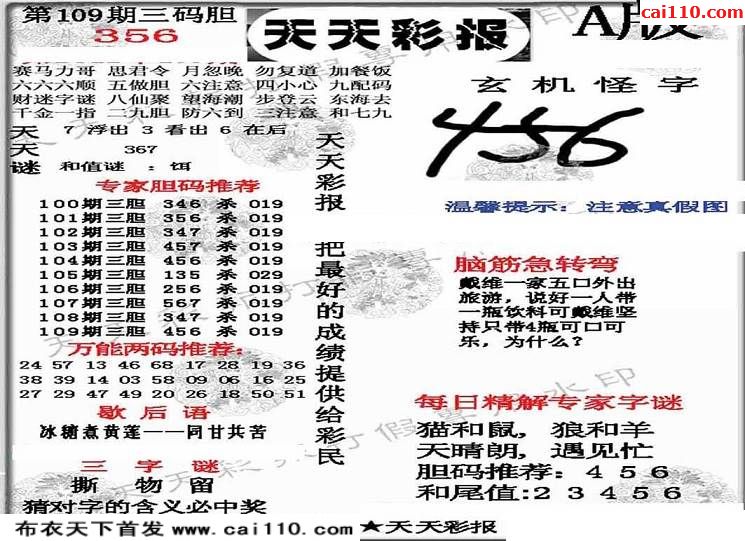 第109期三码胆
356
天天彩报
A版
cai110.com
赛马力哥 思君令 月忽晚 勿复道 加餐饭
六六六顺 五做胆 六注意 四小心 九配码
财迷字谜 八仙聚 望海潮 步登云 东海去
千金一指 二九胆 防六到 三注意 和七九
天 7 浮出 3 看出 6 在后
天 367
谜 和值谜: 饵
专家胆码推荐
100期三胆 346 杀 019
101期三胆 356 杀 019
102期三胆 347 杀 019
103期三胆 457 杀 019
104期三胆 456 杀 019
105期三胆 135 杀 029
106期三胆 256 杀 019
107期三胆 567 杀 019
108期三胆 347 杀 019
109期三胆 456 杀 019
万能两码推荐:
24 57 13 46 68 17 28 19 36
38 39 14 03 58 09 06 16 25
27 29 47 49 20 26 18 50 51
歇后语
冰糖煮黄莲——同甘共苦
三字谜
撕 物 留
猜对字的含义必中奖
天天彩报 把最好的成绩提供给彩民
玄机怪字
456
温馨提示: 注意真假图
脑筋急转弯
戴维一家五口外出
旅游,说好一人带
一瓶饮料可戴维坚
持只带4瓶可口可
乐,为什么?
每日精解专家字谜
猫和鼠,狼和羊
天晴朗,遇见忙
胆码推荐: 4 5 6
和尾值: 2 3 4 5 6
布衣天下首发 www.cai110.com ★天天彩报